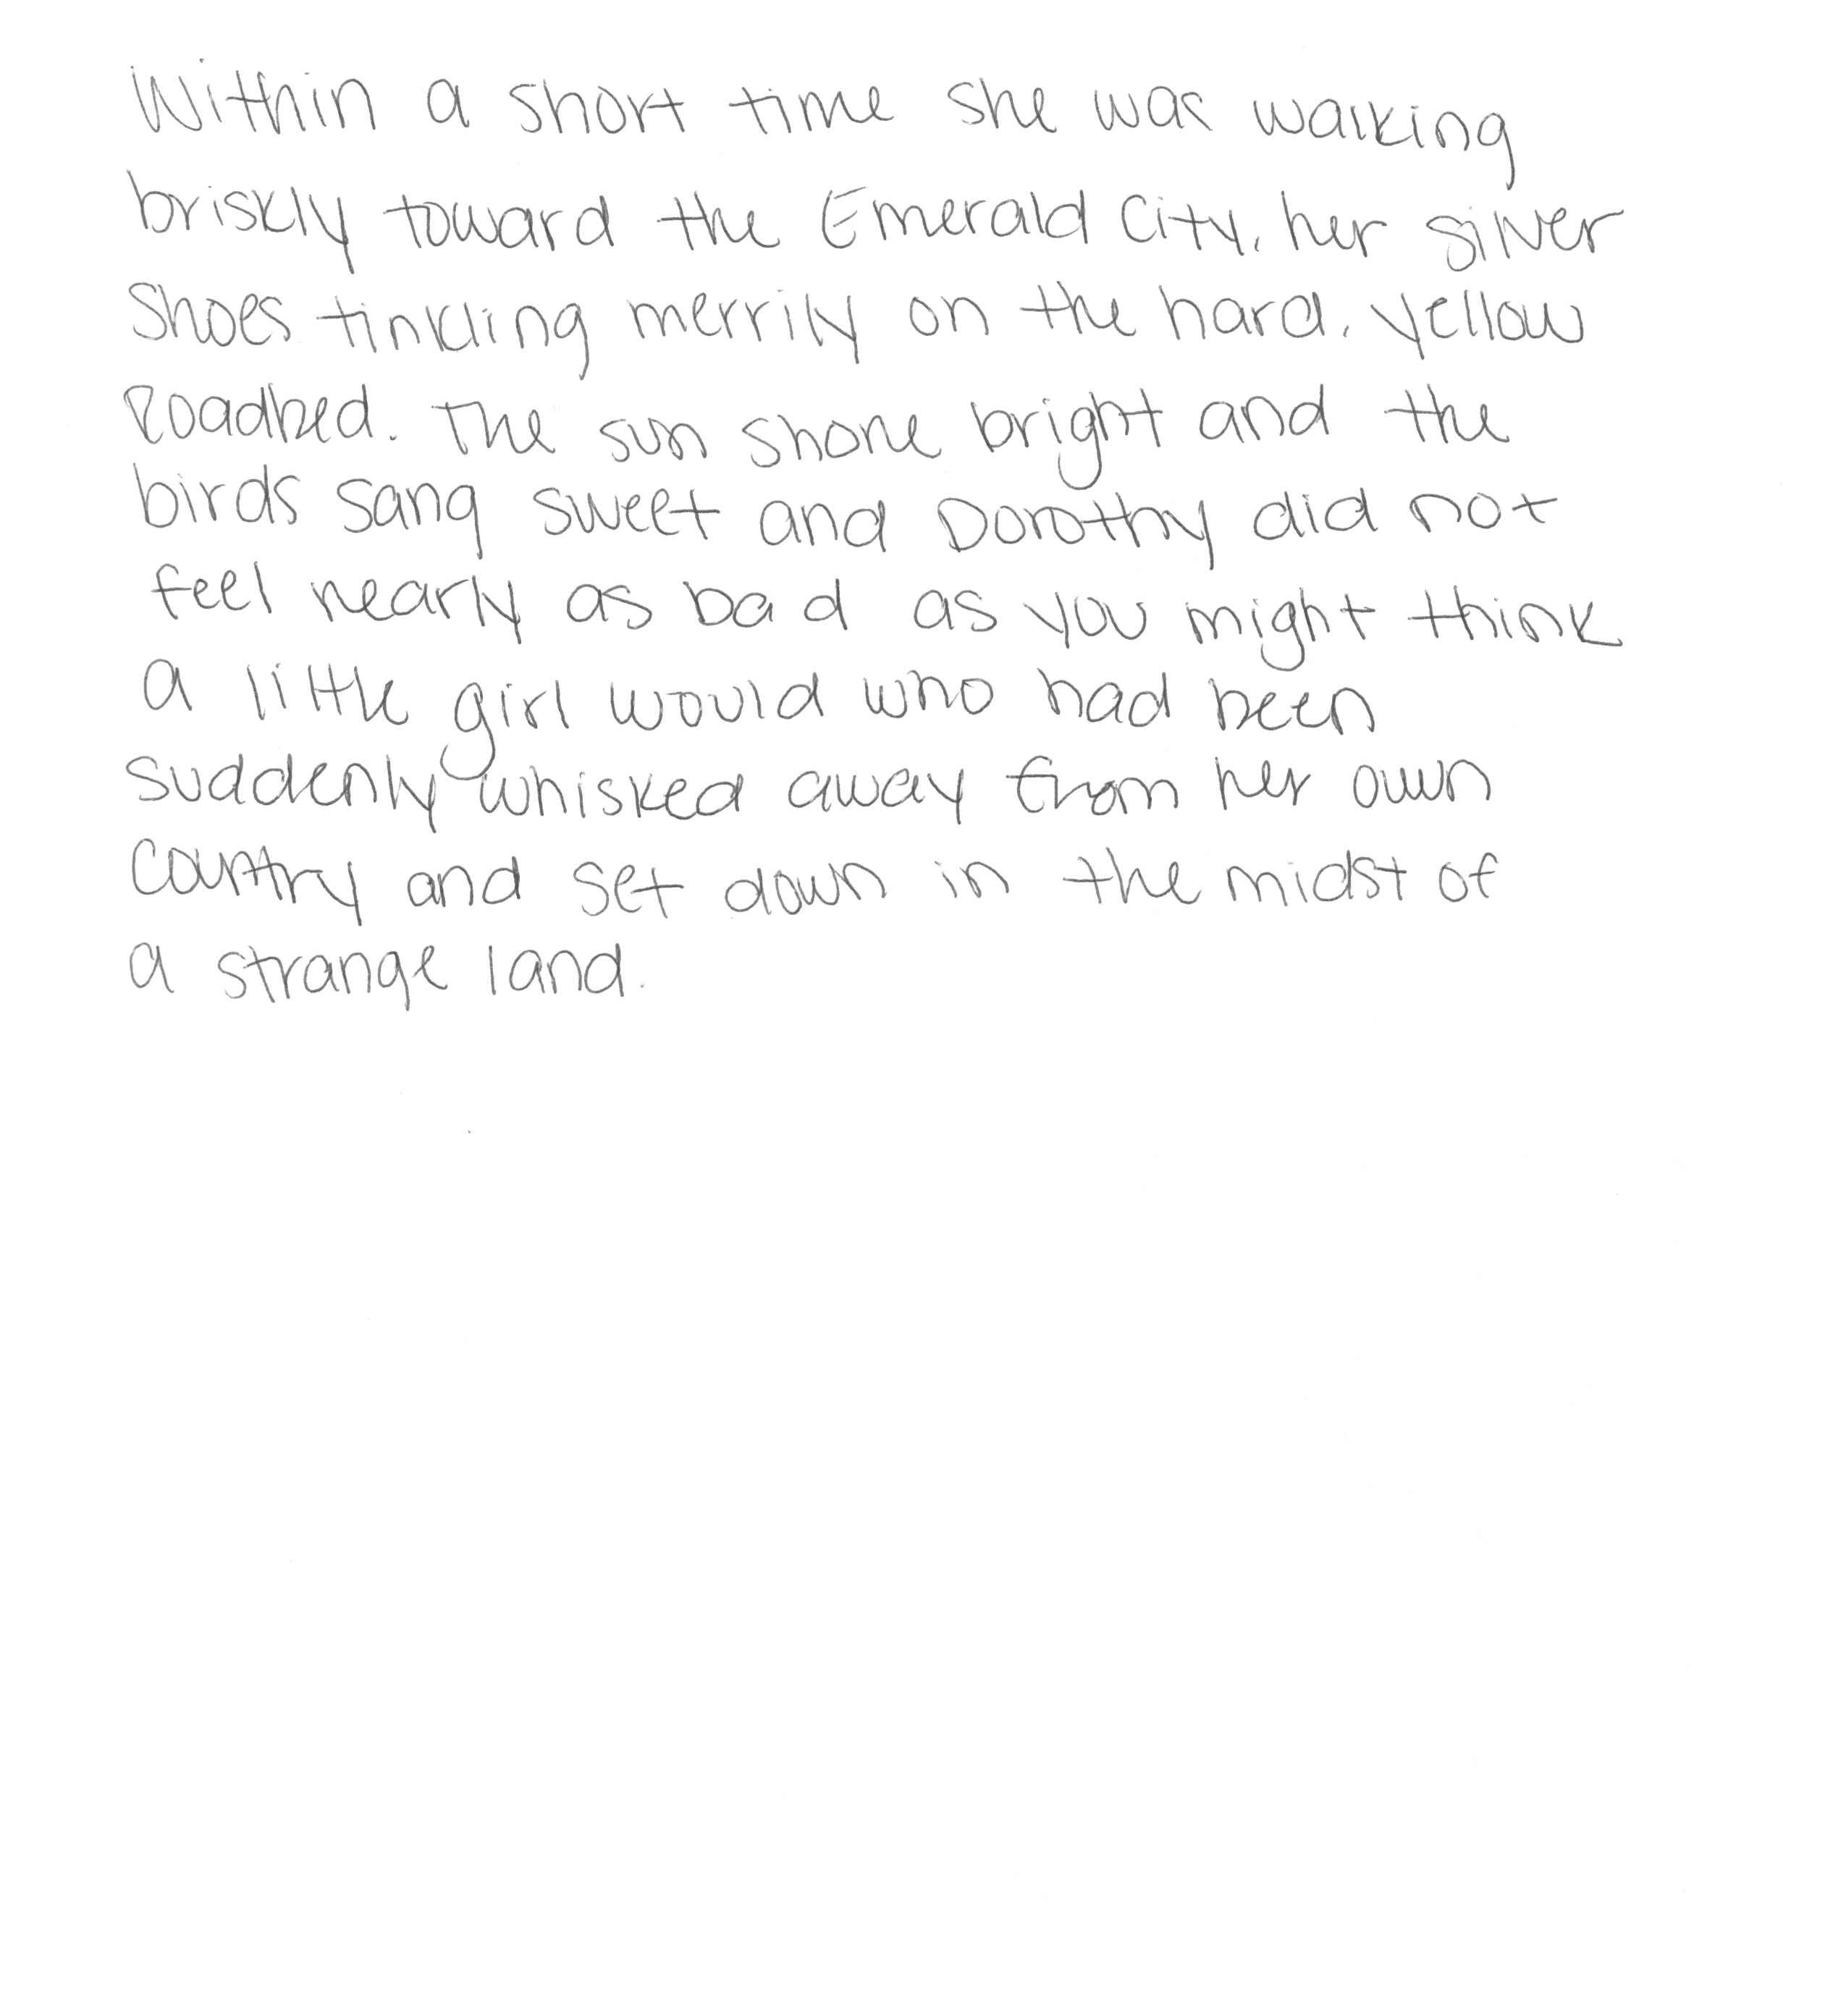 Within a short time she was walking
briskly toward the Emerald City, her silver
Shoes tinkling merrily on the hard, yellow
Roadbed. The sun shone bright and the
birds sang sweet and Dorothy did not
feel nearly as bad as you might think
a little girl would who had been
suddenly whisked away from her own
country and set down in the midst of
a strange land.